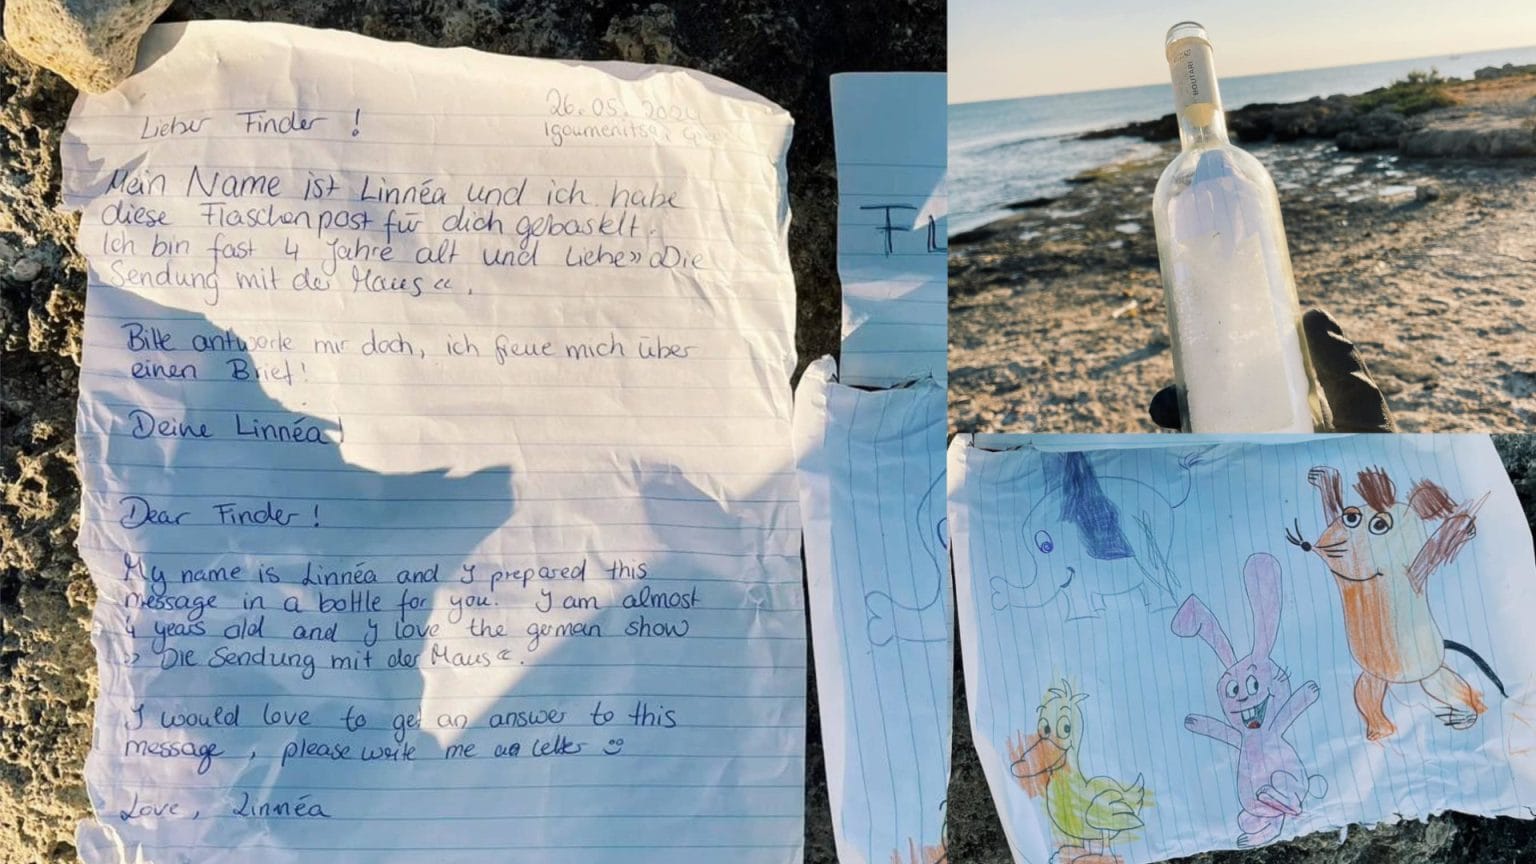 26.05.2024
Igoumenitsa,
Lieber Finder !
Mein Name ist Linnéa und ich habe
diese Flaschenpost für dich gebastelt.
Ich bin fast 4 Jahre alt und liebe »Die
Sendung mit der Maus«.
Bitte antworte mir doch, ich freue mich über
einen Brief!
Deine Linnéa!
Dear Finder !
My name is Linnéa and I prepared this
message in a bottle for you. I am almost
4 years old and I love the german show
» Die Sendung mit der Maus«.
I would love to get an answer to this
message, please write me a letter ☺
Love, Linnéa
FL
BOUTARI